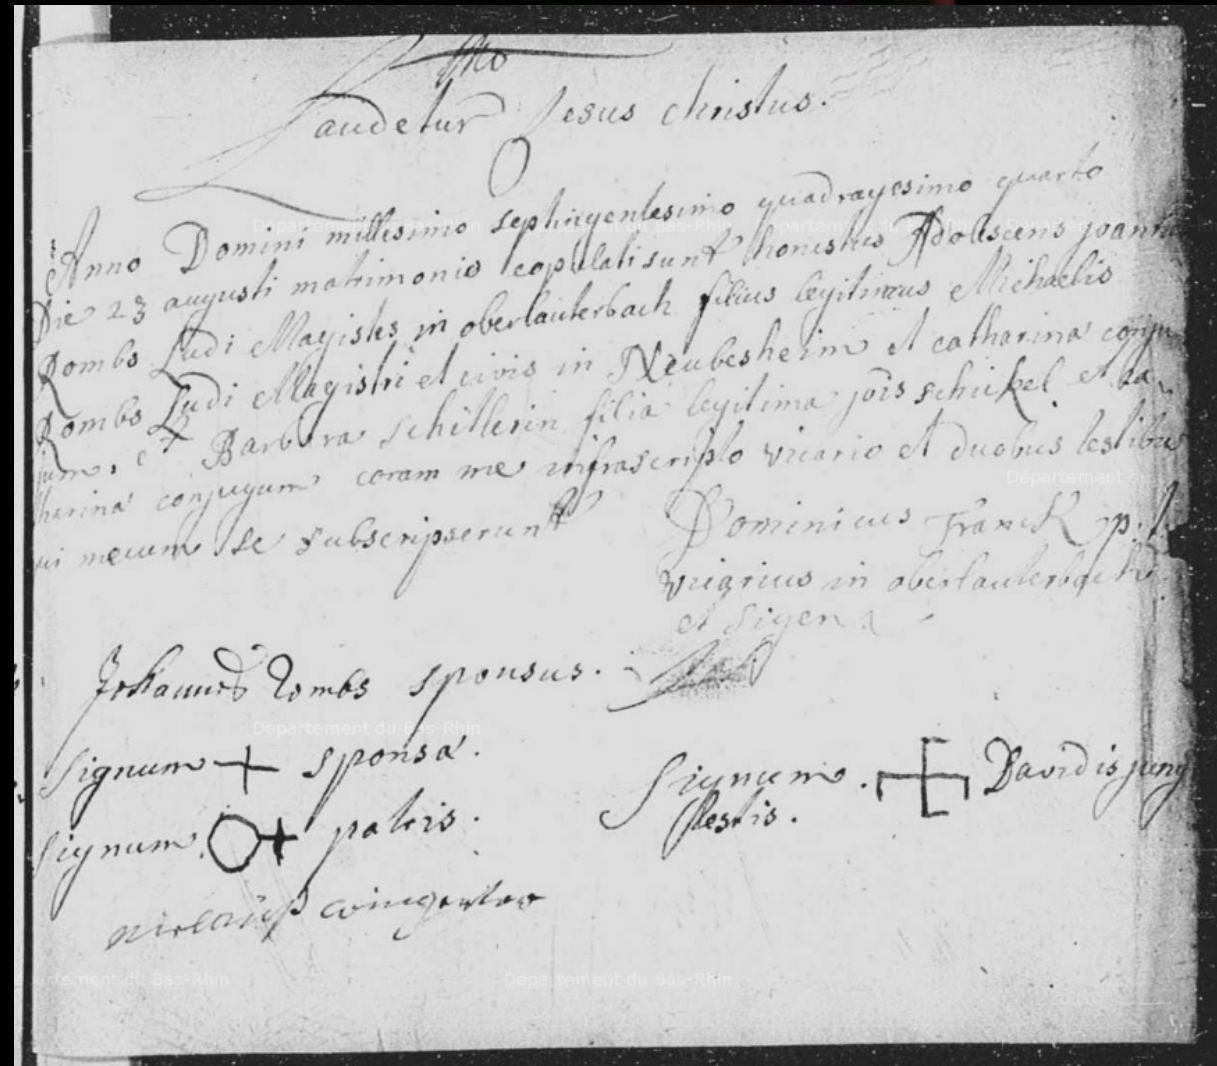 Laudetur Jesus Christus.
Anno Domini millesimo septingentesimo quadragesimo quarto
Die 23 augusti matrimonio copulati sunt honestus Adolescens joannes
Rombs Ludi Magister in oberlauterbach filius legitimus Michaelis
Rombs Ludi Magistri et civis in et catharina conju
gum, et Barbara schillerin filia legitima jois schickel et ca
tharina conjugum coram me infrascripto vicario et duobus testibus
qui mecum se subscripserunt
Dominicus Franck p. t.
vicarius in oberlauterbach
et Sigen
Johannes Rombs sponsus.
Signum + sponsa.
Signum patris.
Signum. Davidis jung
testis.